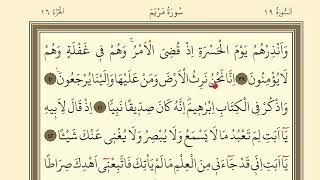 اَلسُّورَةُ ١٩ سُورَةُ مَرْيَمَ اَلْجُزْءُ ١٦
وَاَنْذِرْهُمْ يَوْمَ الْحَسْرَةِ اِذْ قُضِىَ الْاَمْرُ وَهُمْ فِى غَفْلَةٍ وَهُمْ
لَا يُؤْمِنُونَ ٣٩ اِنَّا نَحْنُ نَرِثُ الْاَرْضَ وَمَنْ عَلَيْهَا وَاِلَيْنَا يُرْجَعُونَ ٤٠
وَاذْكُرْ فِى الْكِتَابِ اِبْرٰهِيمَ اِنَّهُ كَانَ صِدِّيقًا نَبِيًّا ٤١ اِذْ قَالَ لِاَبِيهِ
يَٓا اَبَتِ لِمَ تَعْبُدُ مَا لَا يَسْمَعُ وَلَا يُبْصِرُ وَلَا يُغْنِى عَنْكَ شَيْئًا ٤٢
يَٓا اَبَتِ اِنِّى قَدْ جَٓاءَنِى مِنَ الْعِلْمِ مَا لَمْ يَأْتِكَ فَاتَّبِعْنِٓى اَهْدِكَ صِرَاطًا